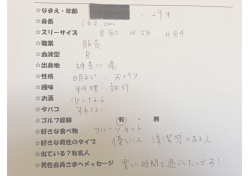 ☆なまえ・年齢 29才
☆身長 162cm
☆スリーサイズ B 80 W 58 H 84
☆職業 販売
☆血液型 B
☆出身地 神奈川県
☆性格 明るい、おっとり
☆趣味 料理・旅行
☆お酒 少したしなむ
☆タバコ すわない
☆ゴルフ経験 有・無
☆好きな食べ物 フルーツ
☆好きな男性のタイプ 優しい人・清潔感のある人
☆似ている?有名人
☆男性会員さまへメッセージ 楽しい時間を過ごしたいです!